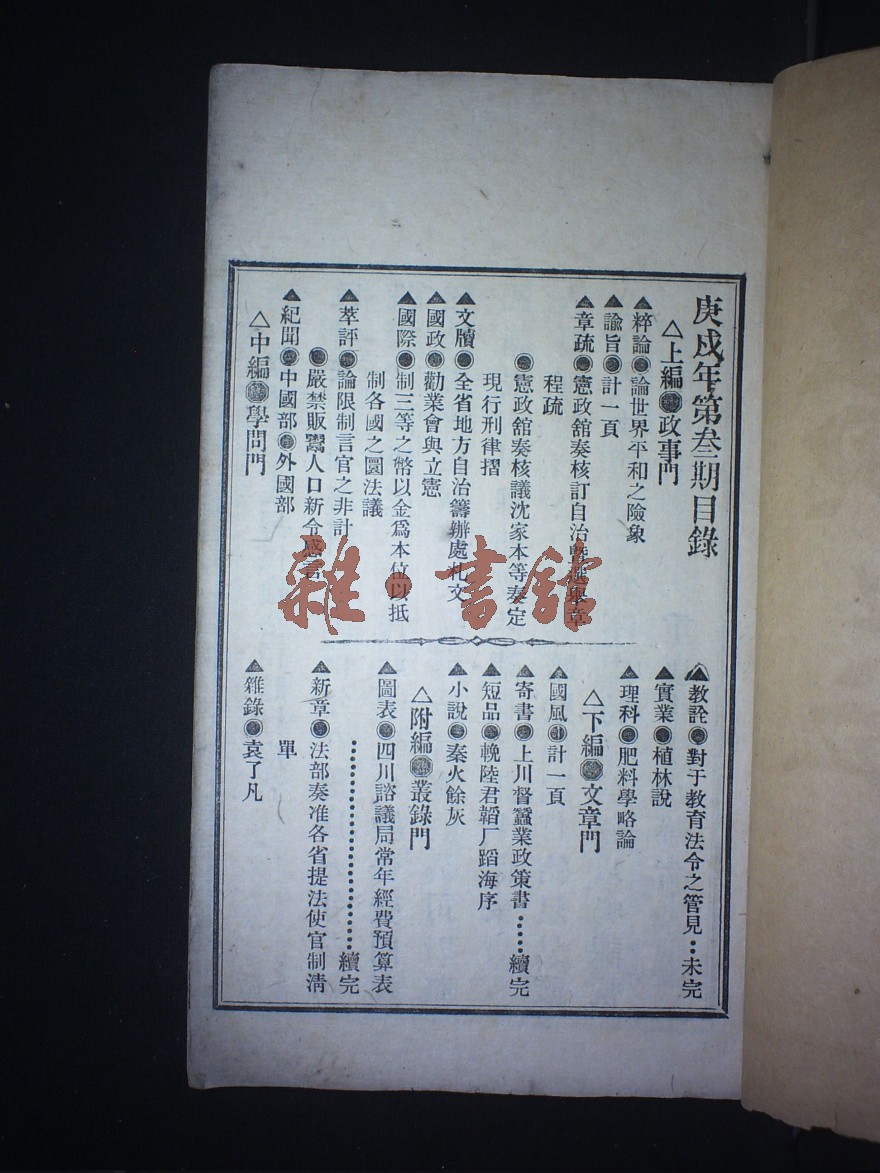 庚戌年第叁期目錄
△上編●政事門
▲粹論●論世界平和之險象
▲諭旨●計一頁
▲章疏●憲政舘奏核訂自治暨選舉章
程疏
●憲政舘奏核議沈家本等奏定
現行刑律摺
▲文牘●全省地方自治籌辦處札文
▲國政●勸業會與立憲
▲國際●制三等之幣以金爲本位以抵
制各國之圜法議
▲萃評●論限制言官之非計
●嚴禁販鬻人口新令感言
▲紀聞●中國部●外國部
△中編●學問門
▲教詮●對于教育法令之管見‥未完
▲實業●植林說
▲理科●肥料學略論
△下編●文章門
▲國風●計一頁
▲寄書●上川督蠶業政策書……續完
▲短品●輓陸君韜厂蹈海序
▲小說●秦火餘灰
△附編●叢錄門
▲圖表●四川諮議局常年經費預算表
……………………續完
▲新章●法部奏准各省提法使官制清
單
▲雜錄●袁了凡
雜·書舘